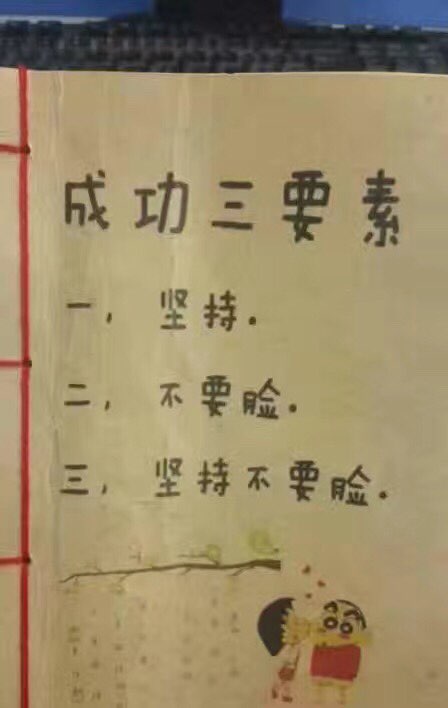 成功三要素
一，坚持.
二，不要脸.
三，坚持不要脸.